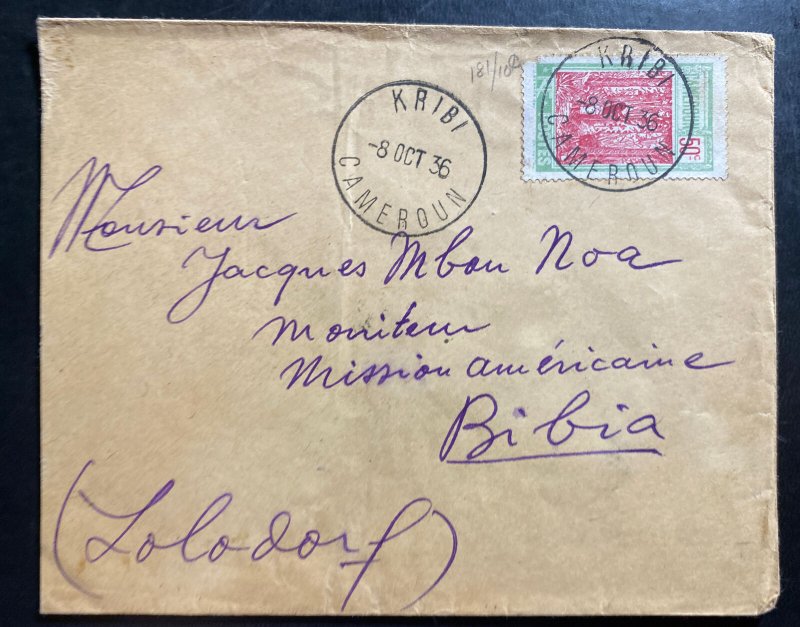 181/182
KRIBI
-8 OCT 36
CAMEROUN
KRIBI
-8 OCT 36
CAMEROUN
50c
POSTES
Monsieur
Jacques Mbou Noa
Moniteur
Mission américaine
Bibia
(Lolodorf)